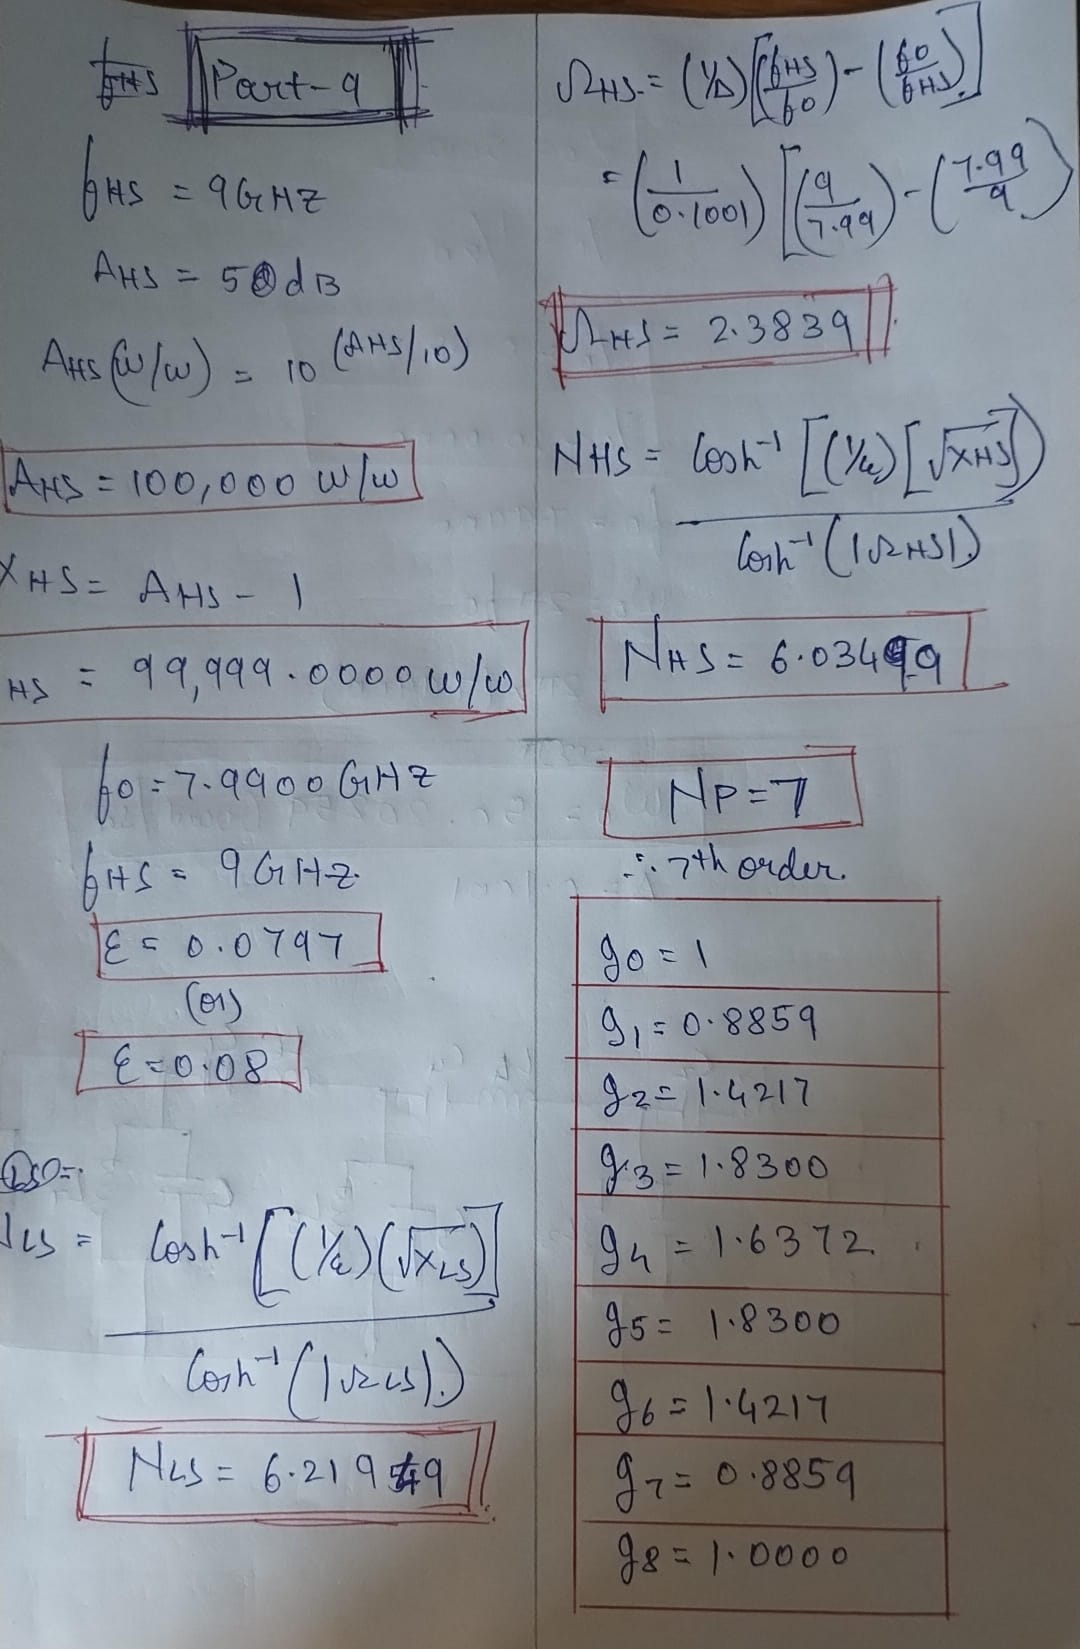 Part-9
fHS = 9GHZ
AHS = 50dB
AHS (W/W) = 10 (AHS/10)
AHS = 100,000 W/W
XHS = AHS - 1
HS = 99,999.0000 W/W
fo = 7.9900 GHZ
fHS = 9 GHZ
ε = 0.0797
(or)
ε = 0.08
LS = Cosh⁻¹ [(1/ε)(√XLS)]
Cosh⁻¹ (|ΩLS|)
NLS = 6.21949
ΩHS = (1/Δ) [(fHS/fo) - (fo/fHS)]
= (1/0.1001) [(9/7.99) - (7.99/9)
ΩHS = 2.3839
NHS = Cosh⁻¹ [(1/ε) [√XHS])
Cosh⁻¹ (|ΩHS|)
NHS = 6.03499
NP = 7
∴ 7th order.
g0 = 1
g1 = 0.8859
g2 = 1.4217
g3 = 1.8300
g4 = 1.6372
g5 = 1.8300
g6 = 1.4217
g7 = 0.8859
g8 = 1.0000